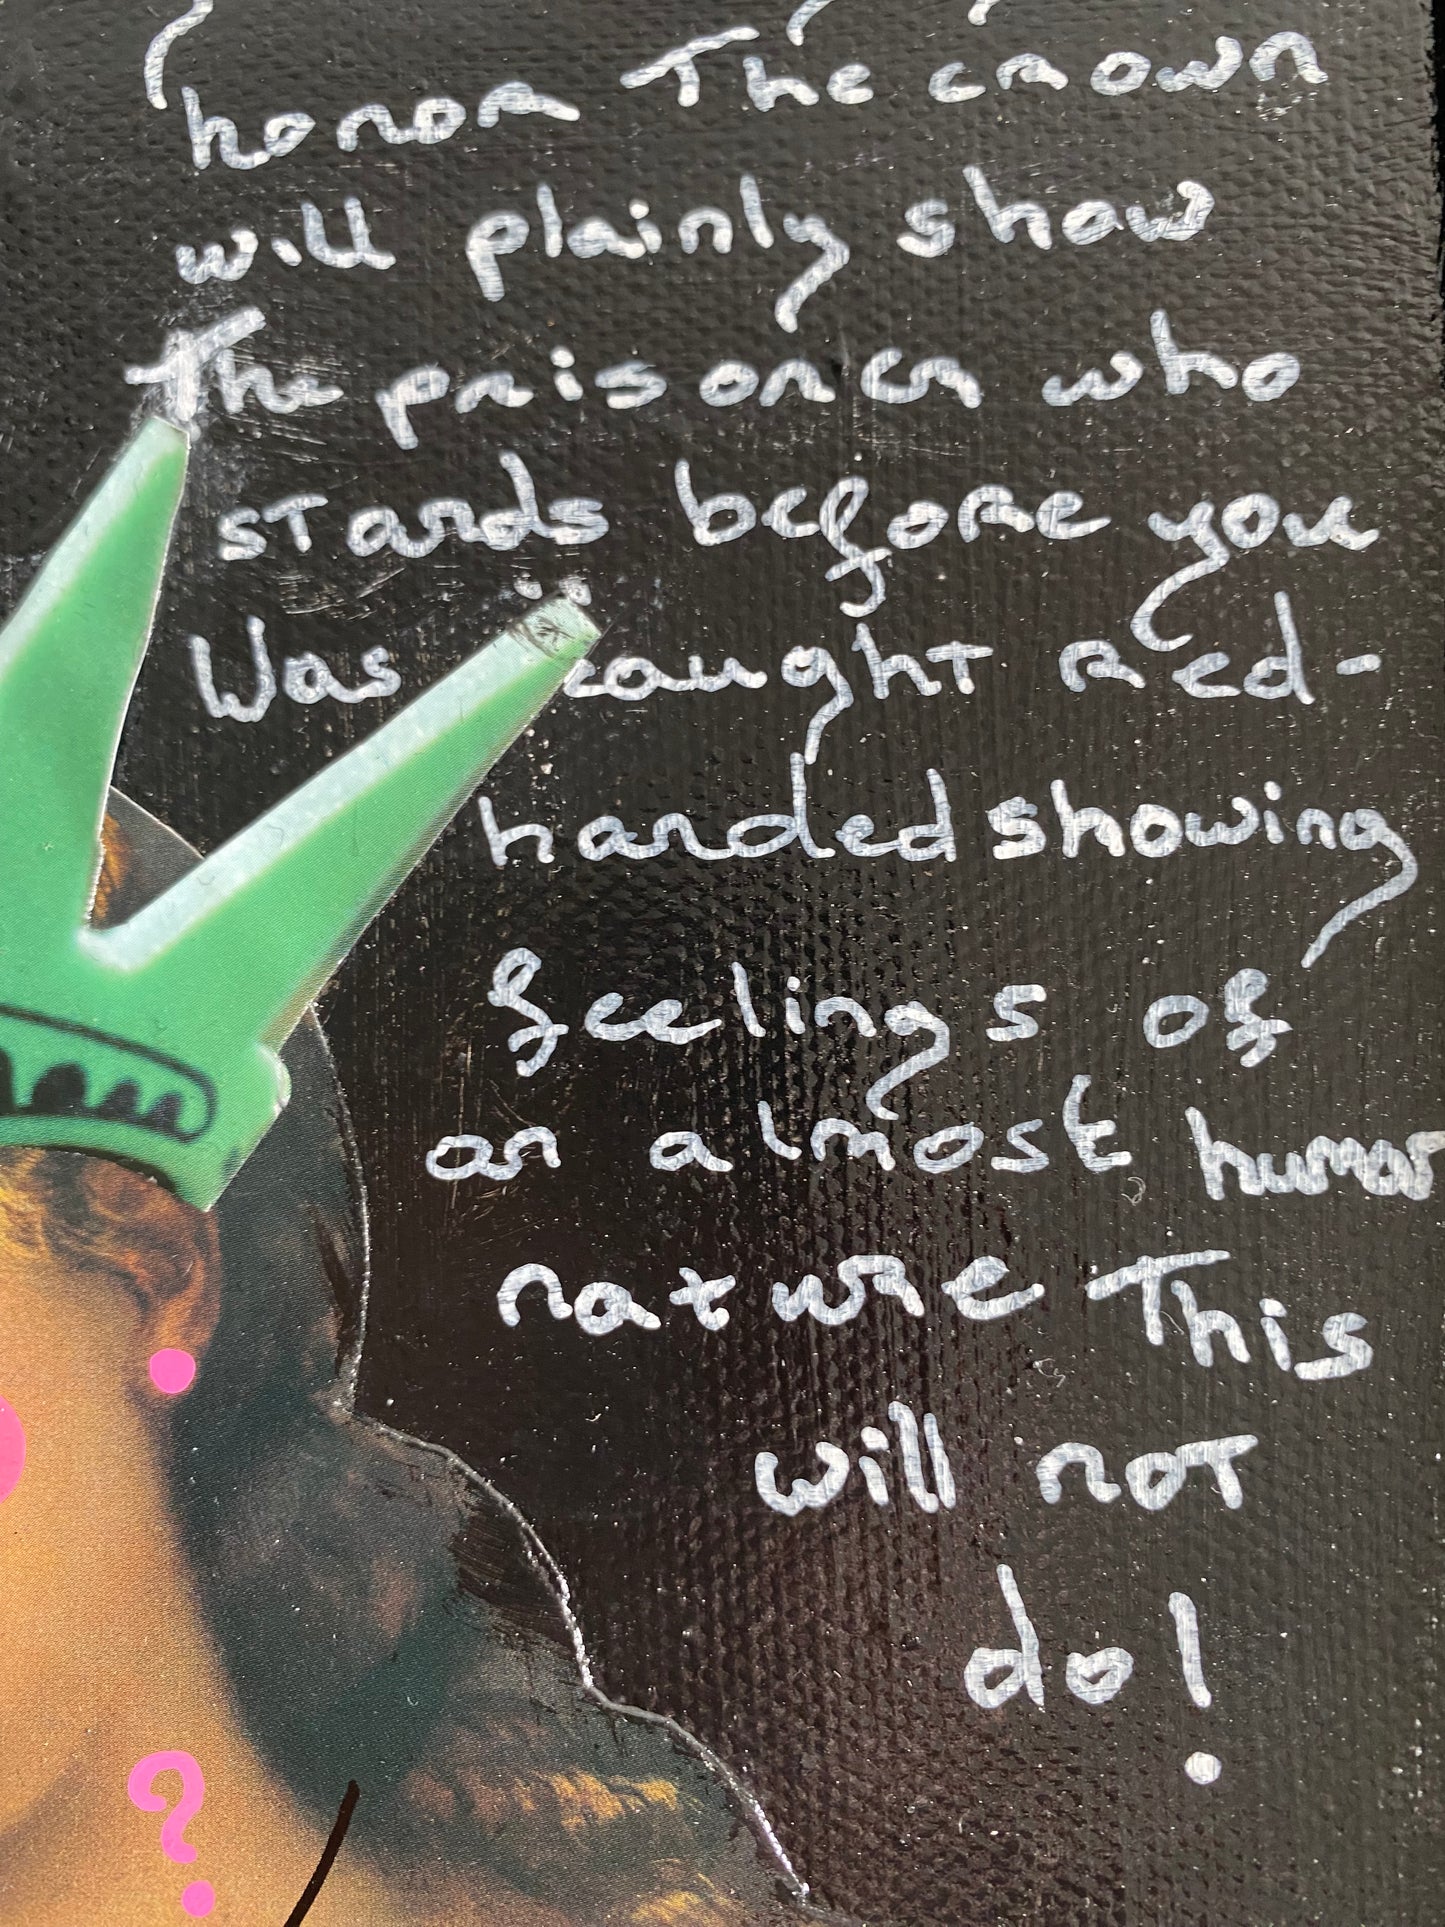 honor The crown
will plainly show
The prisoner who
stands before you
Was caught Red-
handed showing
feelings of
an almost human
nature This
will not
do!
?